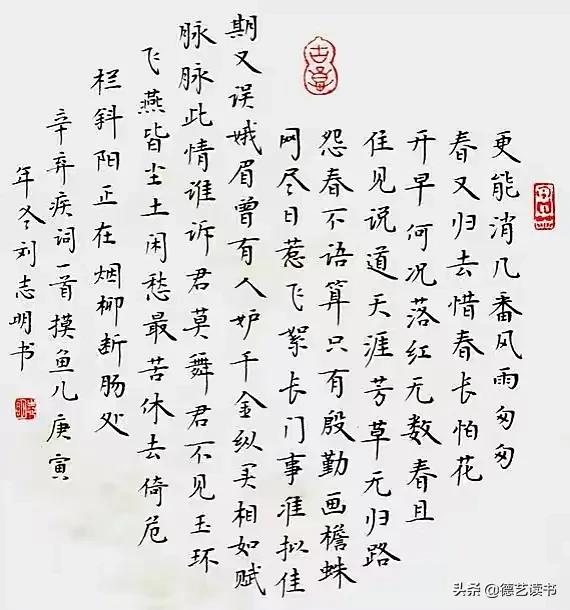 更能消几番风雨匆匆
春又归去惜春长怕花
开早何况落红无数春且
住见说道天涯芳草无归路
怨春不语算只有殷勤画檐蛛
网尽日惹飞絮长门事准拟佳
期又误娥眉曾有人妒千金纵买相如赋
脉脉此情谁诉君莫舞君不见玉环
飞燕皆尘土闲愁最苦休去倚危
栏斜阳正在烟柳断肠处
辛弃疾词一首摸鱼儿庚寅
年冬刘志明书
头条 @德艺读书